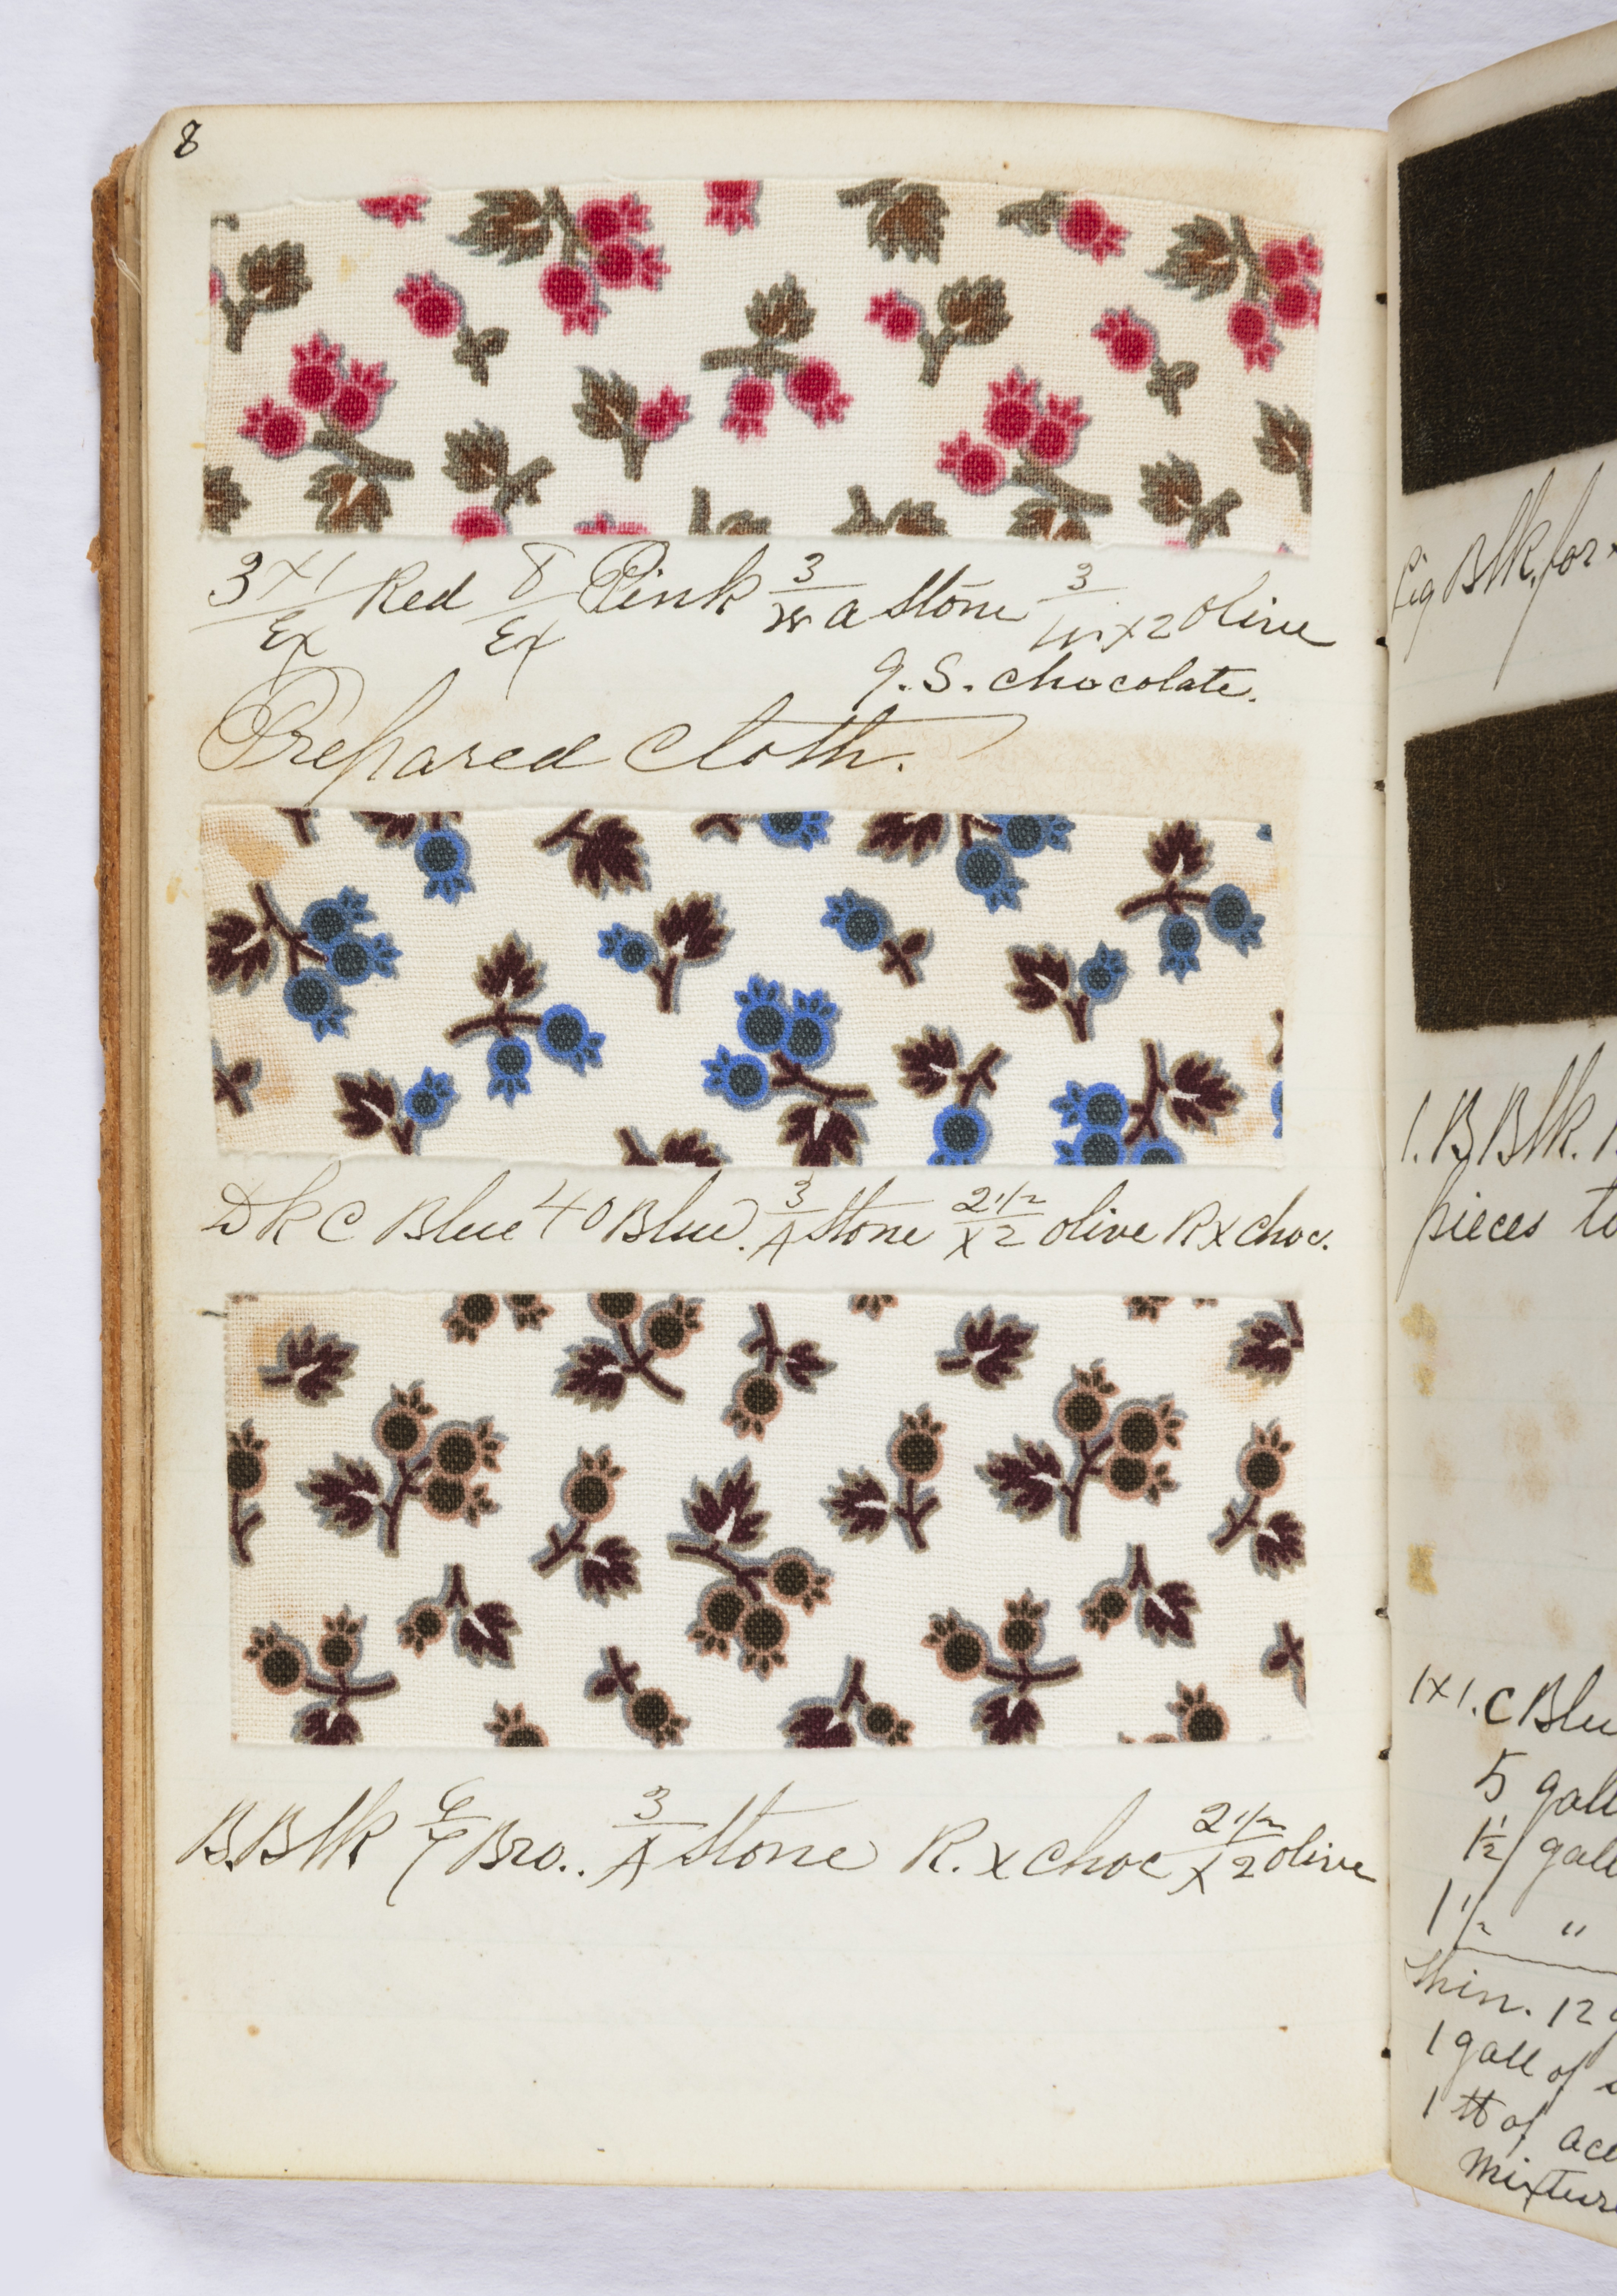 8
3x1/Ex Red 8/Ex Pink 3/ a Stone 3/ x2 olive
G.S. chocolate.
Prepared Cloth.
Dk C Blue 40 Blue. 3/A Stone 2 1/2/x2 olive R x choc.
B.Blk 6/ Bro.. 3/A Stone R. x choc 2 1/2/x2 olive
Blk for
1.B Blk.
pieces to
1x1. C Blu
5 gall
1 1/2 gall
1 1/2 "
Thin. 12 g
1 gall of
1 lb of ace
mixture